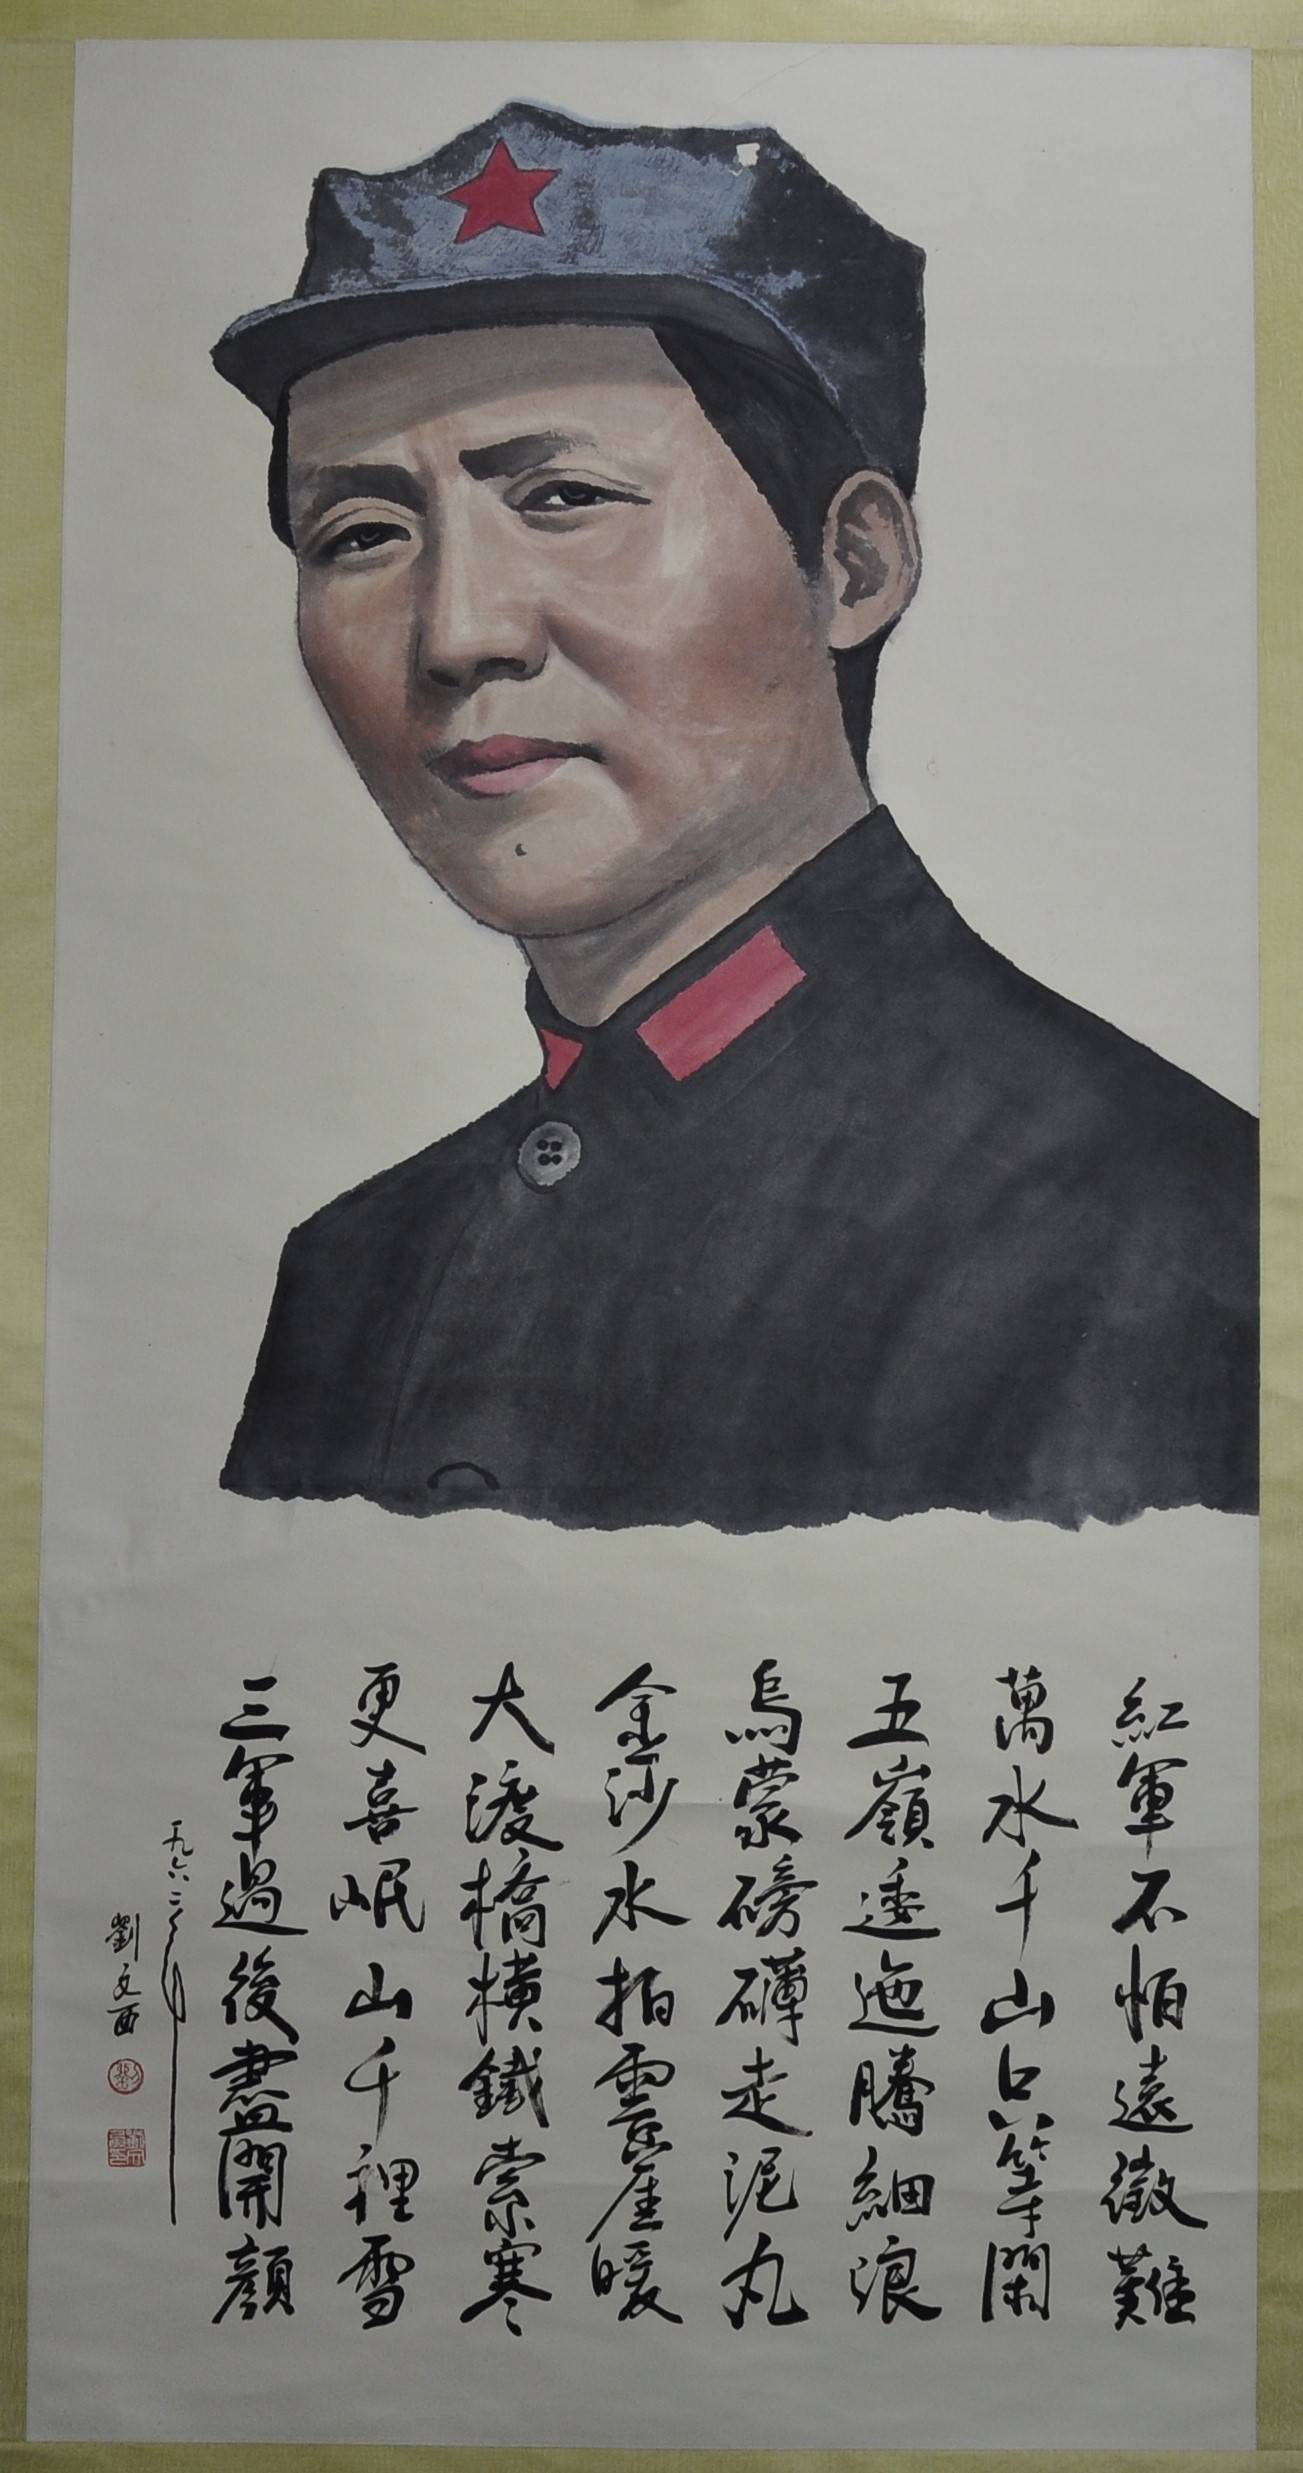 紅軍不怕遠徵難
萬水千山只等閑
五嶺逶迤騰細浪
烏蒙磅礴走泥丸
金沙水拍雲崖暖
大渡橋橫鐵索寒
更喜岷山千裡雪
三軍過後盡開顏
一九六二年
劉文西